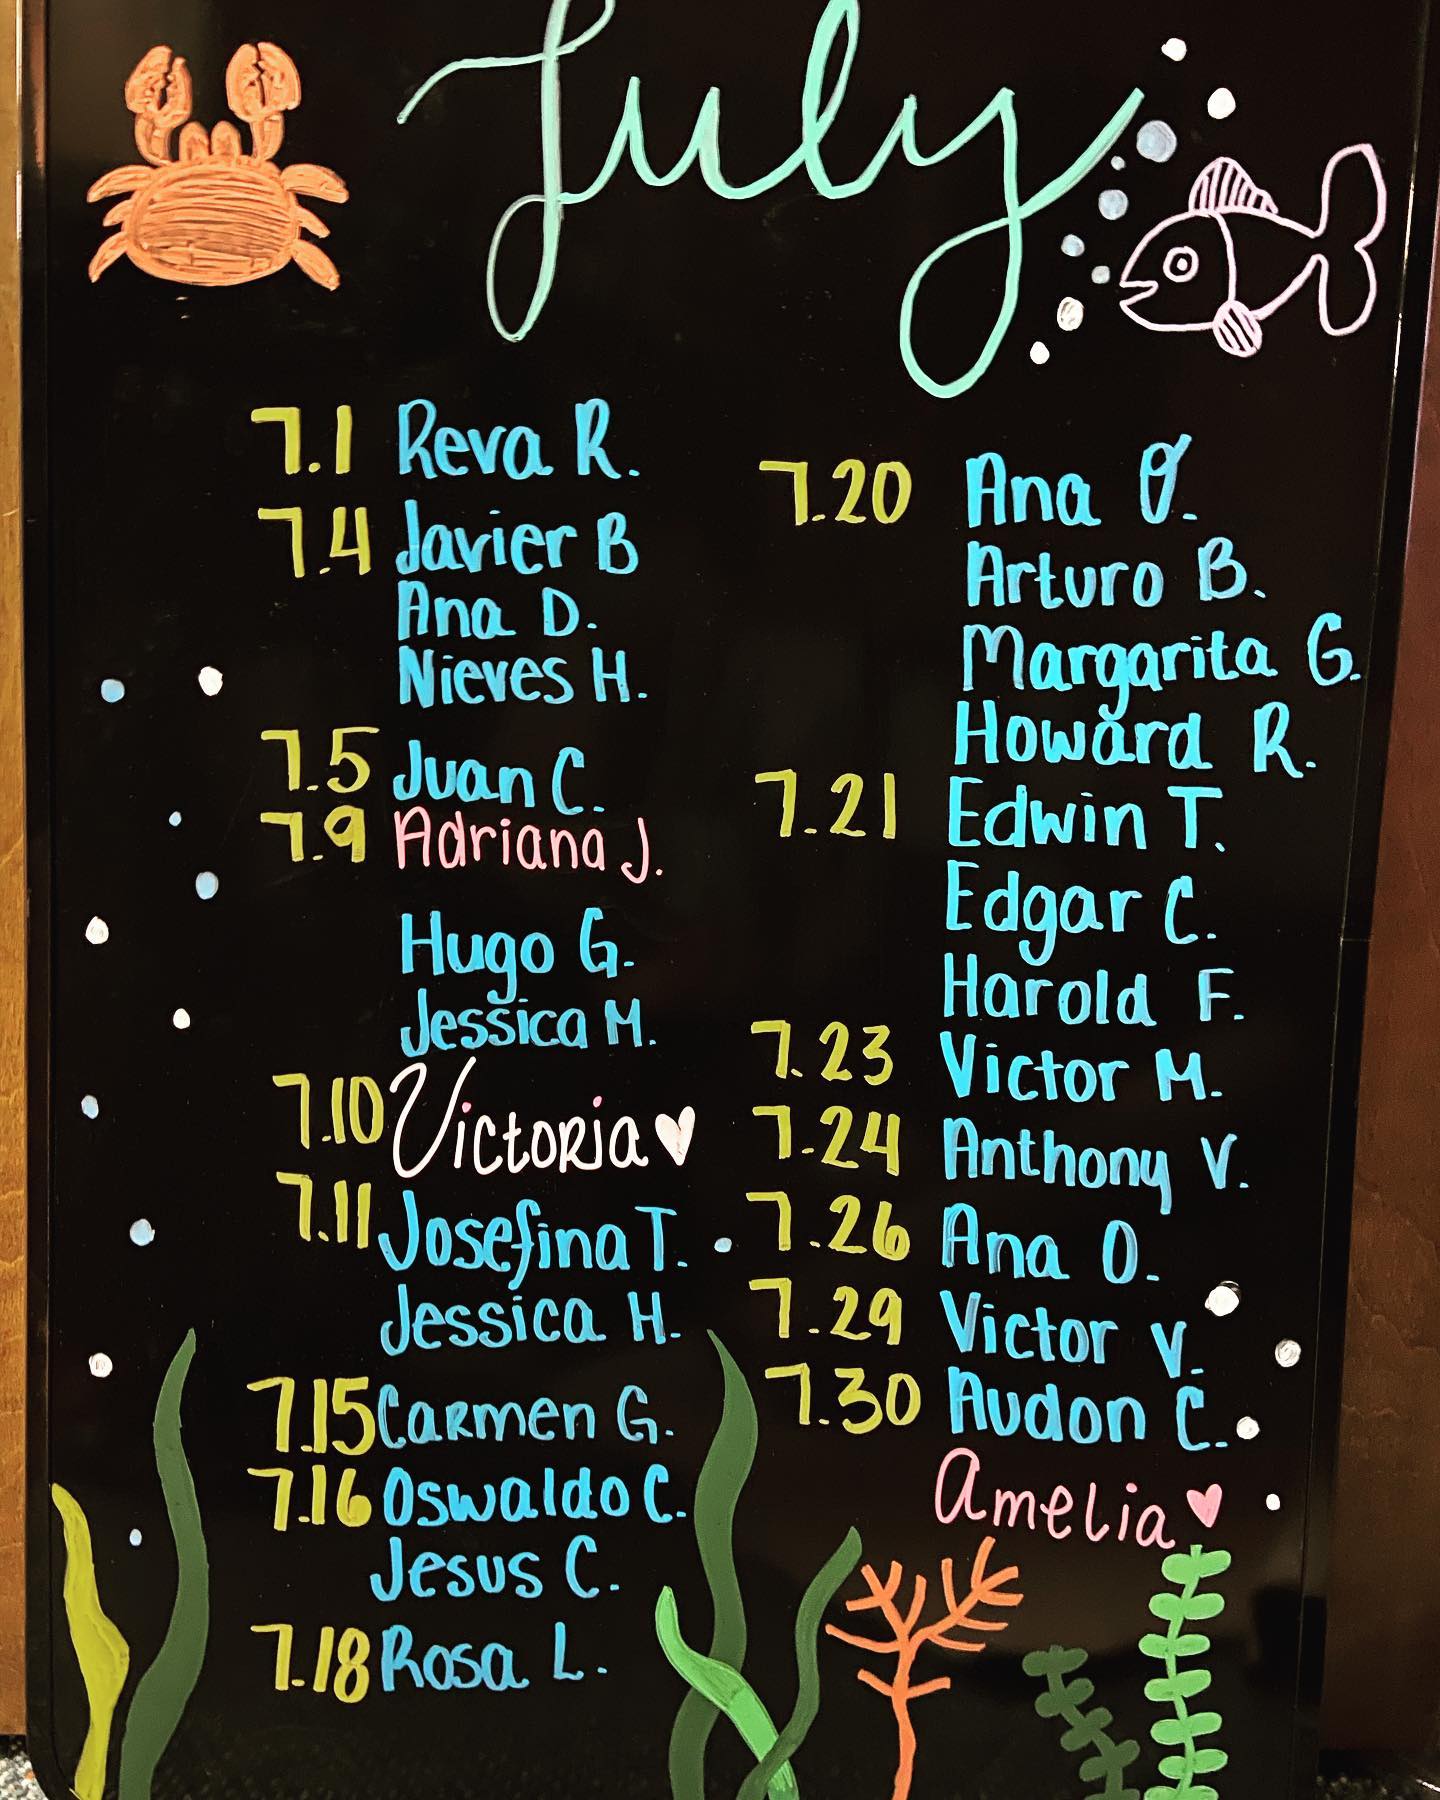 July
7.1 Reva R.
7.4 Javier B
Ana D.
Nieves H.
7.5 Juan C.
7.9 Adriana J.
Hugo G.
Jessica M.
7.10 Victoria
7.11 Josefina T.
Jessica H.
7.15 Carmen G.
7.16 Oswaldo C.
Jesus C.
7.18 Rosa L.
7.20 Ana O.
Arturo B.
Margarita G.
Howard R.
7.21 Edwin T.
Edgar C.
Harold F.
7.23 Victor M.
7.24 Anthony V.
7.26 Ana O.
7.29 Victor V.
7.30 Audon C.
Amelia